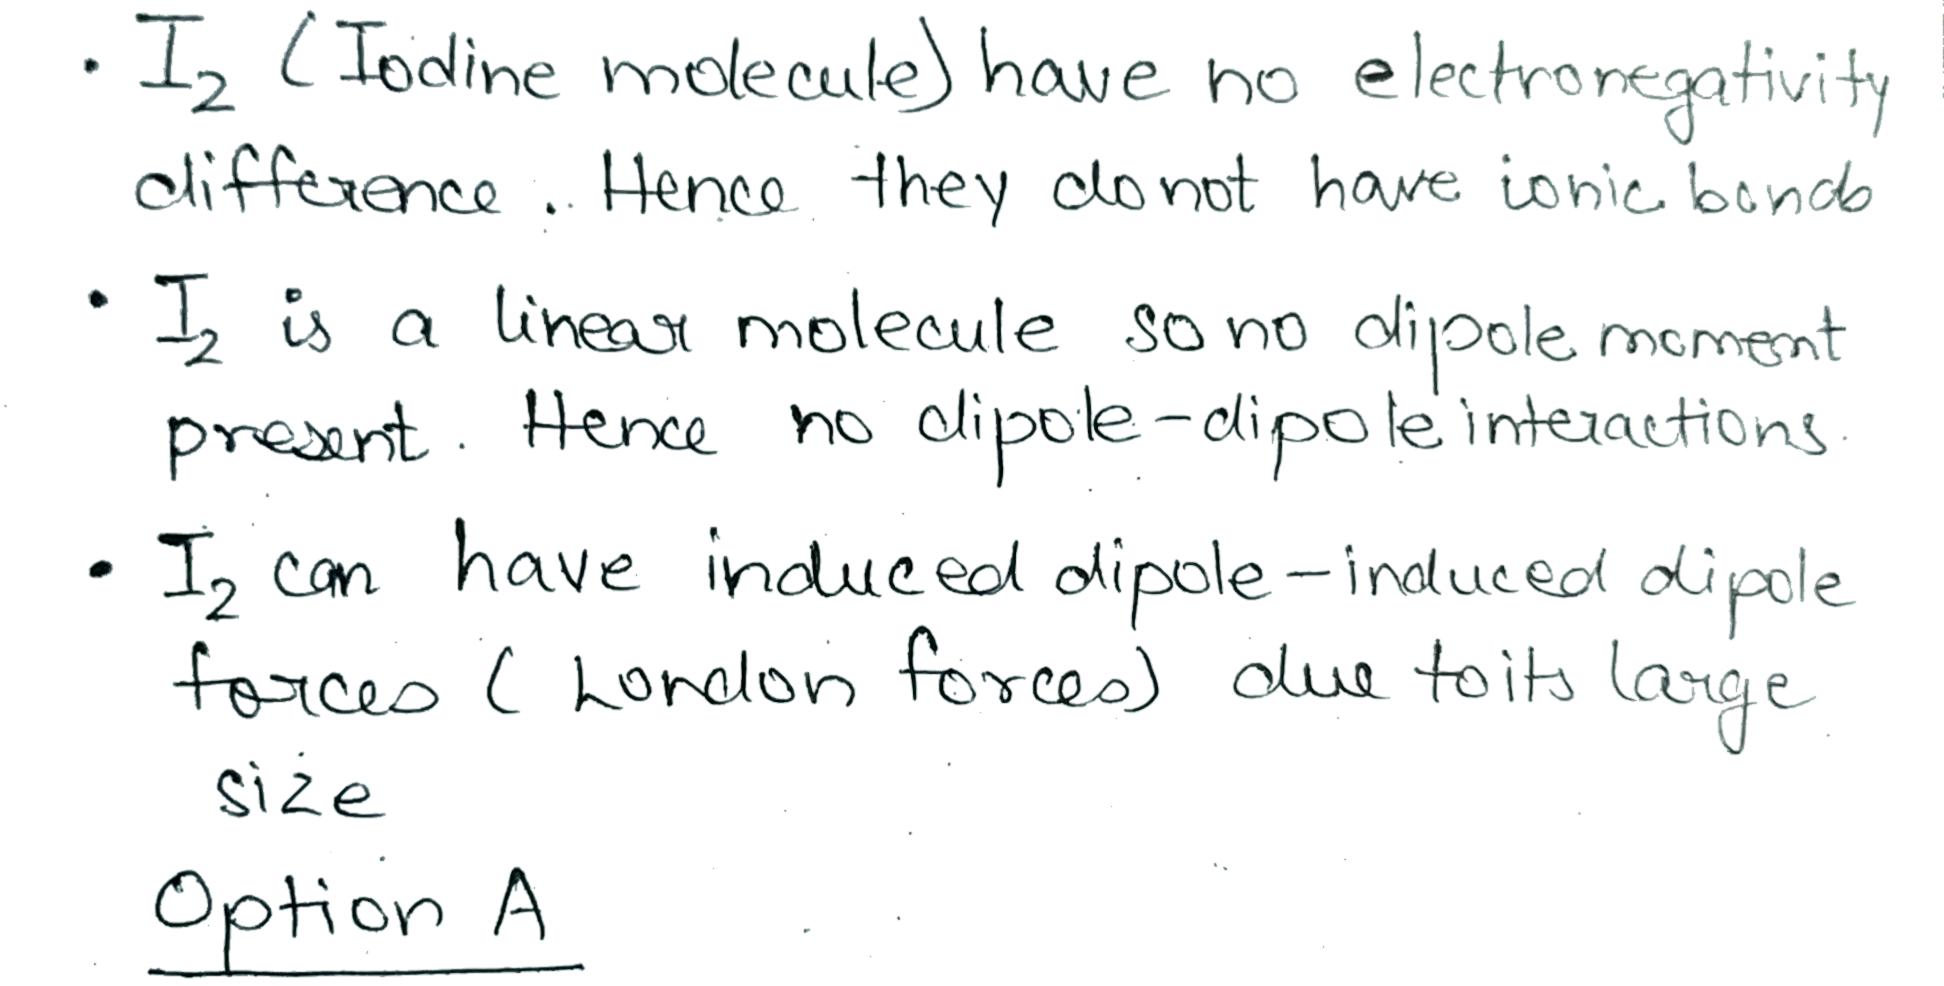 • I₂ (Iodine molecule) have no electronegativity
difference. Hence they do not have ionic bonds
• I₂ is a linear molecule so no dipole moment
present. Hence no dipole-dipole interactions.
• I₂ can have induced dipole-induced dipole
forces (London forces) due to its large
size
Option A